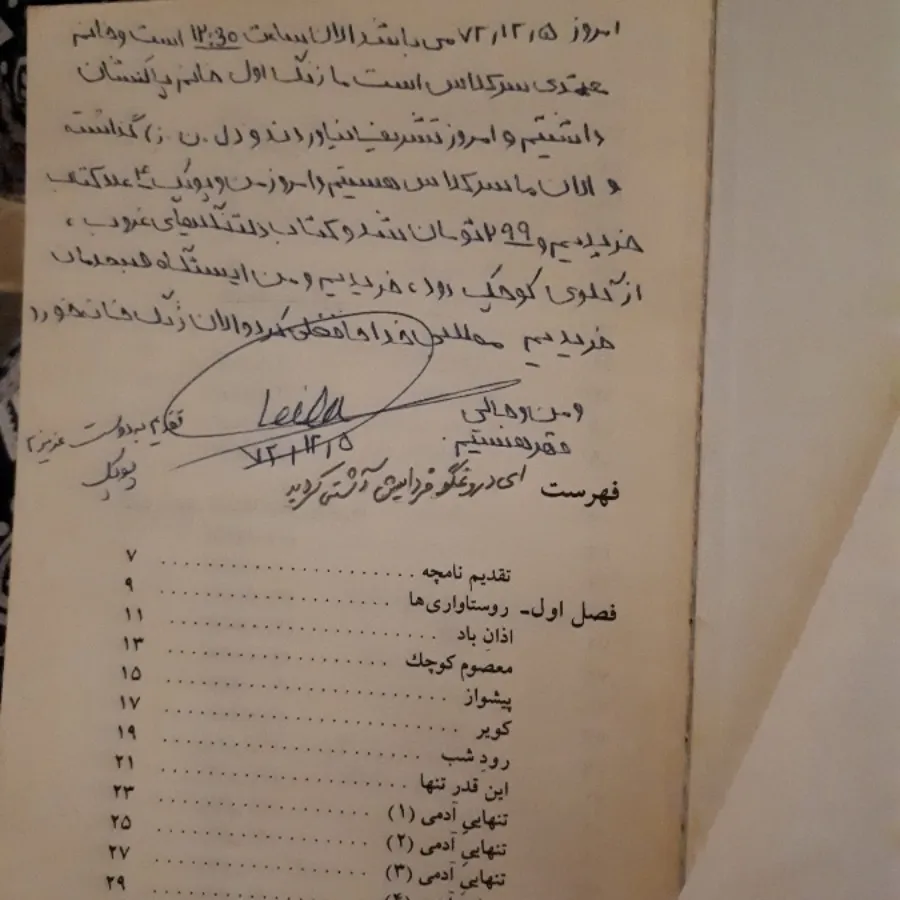 امروز ۷۲،۱۲،۵ می باشد الان ساعت ۱۲:۳۰ است و خانم
معتمدی سر کلاس است ما زنگ اول خانم پاکنشان
داشتیم و امروز تشریف نیاوردند و دل . ن . ز ) گذاشته
و الان ما سر کلاس هستیم و امروز من و پوپک ۴ عدد کتاب
خریدیم و ۲۹۹ تومان شد و کتاب دلتنگی‌های غروب ،
از گلوی کوچک رود ، خریدیم و من ایستگاه صبحدمان
خریدیم خداحافظی کرد و الان زنگ خانه خورد
و من و جالی
هستیم.
Leila
۷۲،۱۲،۵
تقدیم به دوست عزیزم
پوپک
ای دروغگو فردایش آشتی کردید
فهرست
تقدیم نامچه ۷
فصل اول- روستاواری‌ها ۹
اذانِ باد ۱۱
معصوم کوچك ۱۳
پیشواز ۱۵
کویر ۱۷
رودِ شب ۱۹
این قدر تنها ۲۱
تنهاییِ آدمی (۱) ۲۳
تنهاییِ آدمی (۲) ۲۵
تنهاییِ آدمی (۳) ۲۷
۲۹